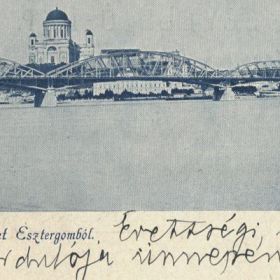 et Esztergomból. Érettségi
rdulója ünnepén